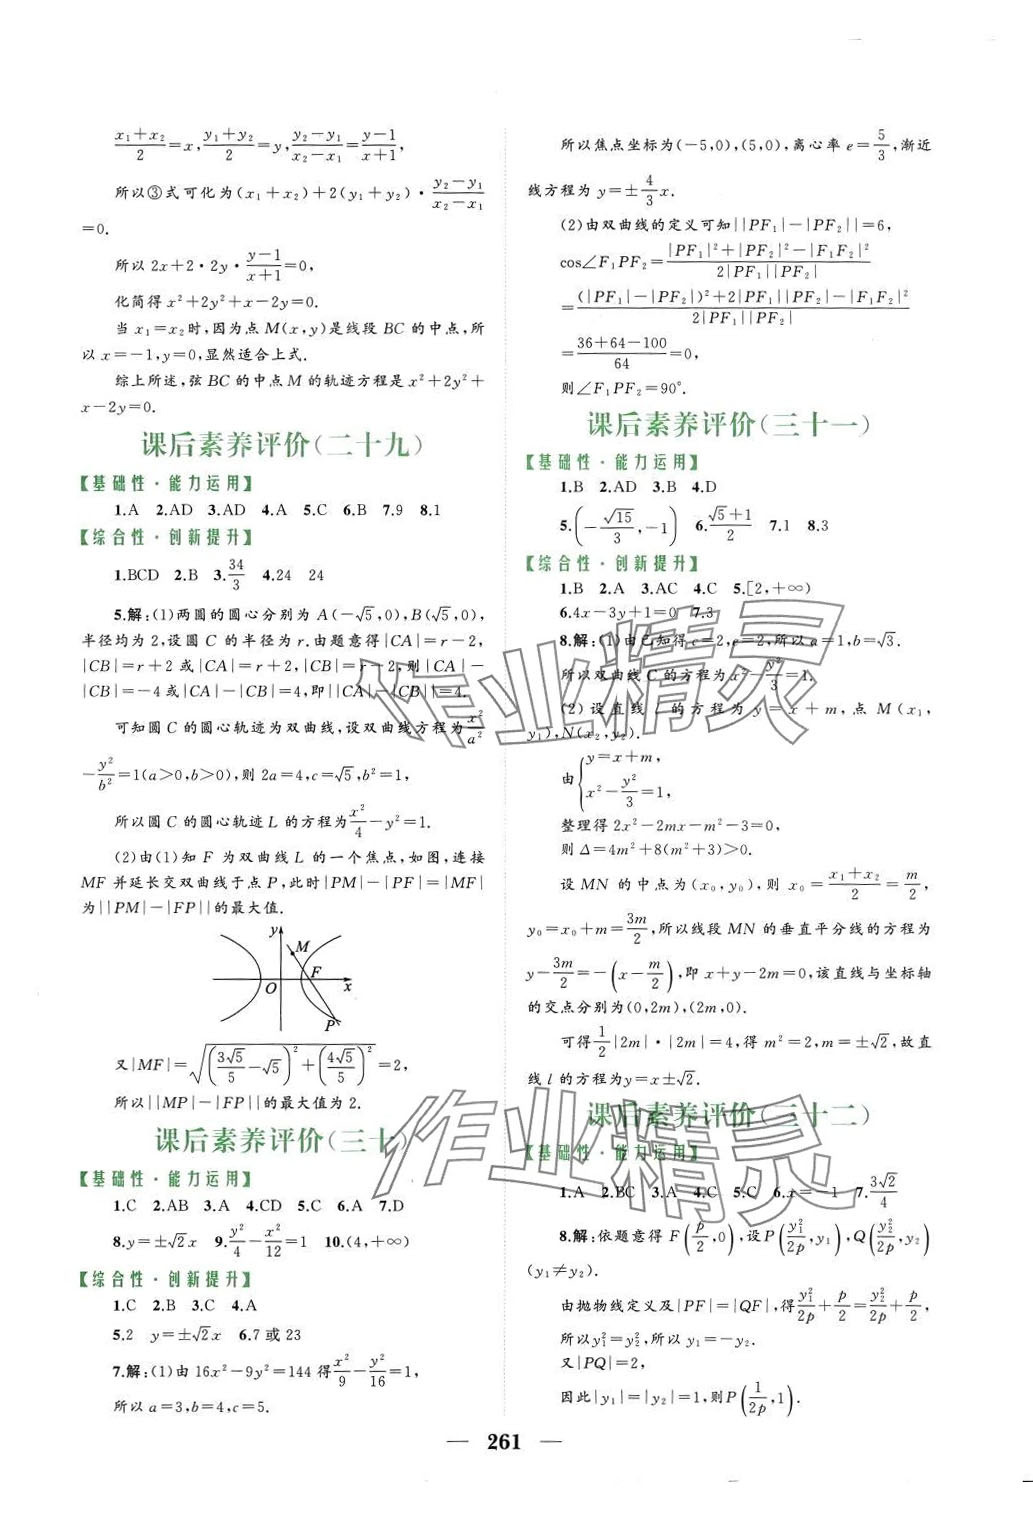 $\frac{x_1+x_2}{2}=x,\frac{y_1+y_2}{2}=y,\frac{y_2-y_1}{x_2-x_1}=\frac{y-1}{x+1},$
所以③式可化为$(x_1+x_2)+2(y_1+y_2)\cdot\frac{y_2-y_1}{x_2-x_1}$
=0.
所以$2x+2\cdot 2y\cdot\frac{y-1}{x+1}=0,$
化简得$x^2+2y^2+x-2y=0.$
当$x_1=x_2$时,因为点M(x,y)是线段BC的中点,所
以x=-1,y=0,显然适合上式.
综上所述,弦BC的中点M的轨迹方程是$x^2+2y^2+$
x-2y=0.
课后素养评价(二十九)
【基础性·能力运用】
1.A 2.AD 3.AD 4.A 5.C 6.B 7.9 8.1
【综合性·创新提升】
1.BCD 2.B 3.$\frac{34}{3}$ 4.24 24
5.解:(1)两圆的圆心分别为$A(-\sqrt{5},0),B(\sqrt{5},0),$
半径均为2,设圆C的半径为r.由题意得|CA|=r-2,
|CB|=r+2或|CA|=r+2,|CB|=r-2,则|CA|-
|CB|=-4或|CA|-|CB|=4,即||CA|-|CB||=4.
可知圆C的圆心轨迹为双曲线,设双曲线方程为$\frac{x^2}{a^2}$
$-\frac{y^2}{b^2}=1(a>0,b>0),$则$2a=4,c=\sqrt{5},b^2=1,$
所以圆C的圆心轨迹L的方程为$\frac{x^2}{4}-y^2=1.$
(2)由(1)知F为双曲线L的一个焦点,如图,连接
MF并延长交双曲线于点P,此时|PM|-|PF|=|MF|
为||PM|-|FP||的最大值.
y
M
F
O
x
P
又$|MF|=\sqrt{\left(\frac{3\sqrt{5}}{5}-\sqrt{5}\right)^2+\left(\frac{4\sqrt{5}}{5}\right)^2}=2,$
所以||MP|-|FP||的最大值为2.
课后素养评价(三十)
【基础性·能力运用】
1.C 2.AB 3.A 4.CD 5.C 6.A 7.D
8.$y=\pm\sqrt{2}x$ 9.$\frac{y^2}{4}-\frac{x^2}{12}=1$ 10.(4,+∞)
【综合性·创新提升】
1.C 2.B 3.C 4.A
5.2 $y=\pm\sqrt{2}x$ 6.7或23
7.解:(1)由$16x^2-9y^2=144$得$\frac{x^2}{9}-\frac{y^2}{16}=1,$
所以a=3,b=4,c=5.
所以焦点坐标为(-5,0),(5,0),离心率$e=\frac{5}{3}$,渐近
线方程为$y=\pm\frac{4}{3}x.$
(2)由双曲线的定义可知$||PF_1|-|PF_2||=6,$
$\cos\angle F_1PF_2=\frac{|PF_1|^2+|PF_2|^2-|F_1F_2|^2}{2|PF_1||PF_2|}$
$=\frac{(|PF_1|-|PF_2|)^2+2|PF_1||PF_2|-|F_1F_2|^2}{2|PF_1||PF_2|}$
$=\frac{36+64-100}{64}=0,$
则$\angle F_1PF_2=90°.$
课后素养评价(三十一)
【基础性·能力运用】
1.B 2.AD 3.B 4.D
5.$\left(-\frac{\sqrt{15}}{3},-1\right)$ 6.$\frac{\sqrt{5}+1}{2}$ 7.1 8.3
【综合性·创新提升】
1.B 2.A 3.AC 4.C 5.[2,+∞)
6.4x-3y+1=0 7.3
8.解:(1)由已知得c=2,e=2,所以a=1,$b=\sqrt{3}.$
所以双曲线C的方程为$x^2-\frac{y^2}{3}=1.$
(2)设直线l的方程为y=x+m,点$M(x_1,$
$y_1),N(x_2,y_2).$
由$\begin{cases}y=x+m,\\x^2-\frac{y^2}{3}=1,\end{cases}$
整理得$2x^2-2mx-m^2-3=0,$
则$\Delta=4m^2+8(m^2+3)>0.$
设MN的中点为$(x_0,y_0)$,则$x_0=\frac{x_1+x_2}{2}=\frac{m}{2},$
$y_0=x_0+m=\frac{3m}{2}$,所以线段MN的垂直平分线的方程为
$y-\frac{3m}{2}=-\left(x-\frac{m}{2}\right)$,即x+y-2m=0,该直线与坐标轴
的交点分别为(0,2m),(2m,0).
可得$\frac{1}{2}|2m|\cdot|2m|=4$,得$m^2=2,m=\pm\sqrt{2}$,故直
线l的方程为$y=x\pm\sqrt{2}.$
课后素养评价(三十二)
【基础性·能力运用】
1.A 2.BC 3.A 4.C 5.C 6.x=-1 7.$\frac{3\sqrt{2}}{4}$
8.解:依题意得$F\left(\frac{p}{2},0\right)$,设$P\left(\frac{y_1^2}{2p},y_1\right),Q\left(\frac{y_2^2}{2p},y_2\right)$
$(y_1\neq y_2).$
由抛物线定义及|PF|=|QF|,得$\frac{y_1^2}{2p}+\frac{p}{2}=\frac{y_2^2}{2p}+\frac{p}{2},$
所以$y_1^2=y_2^2$,所以$y_1=-y_2.$
又|PQ|=2,
因此$|y_1|=|y_2|=1$,则$P\left(\frac{1}{2p},1\right).$
— 261 —
作业精灵
作业精灵